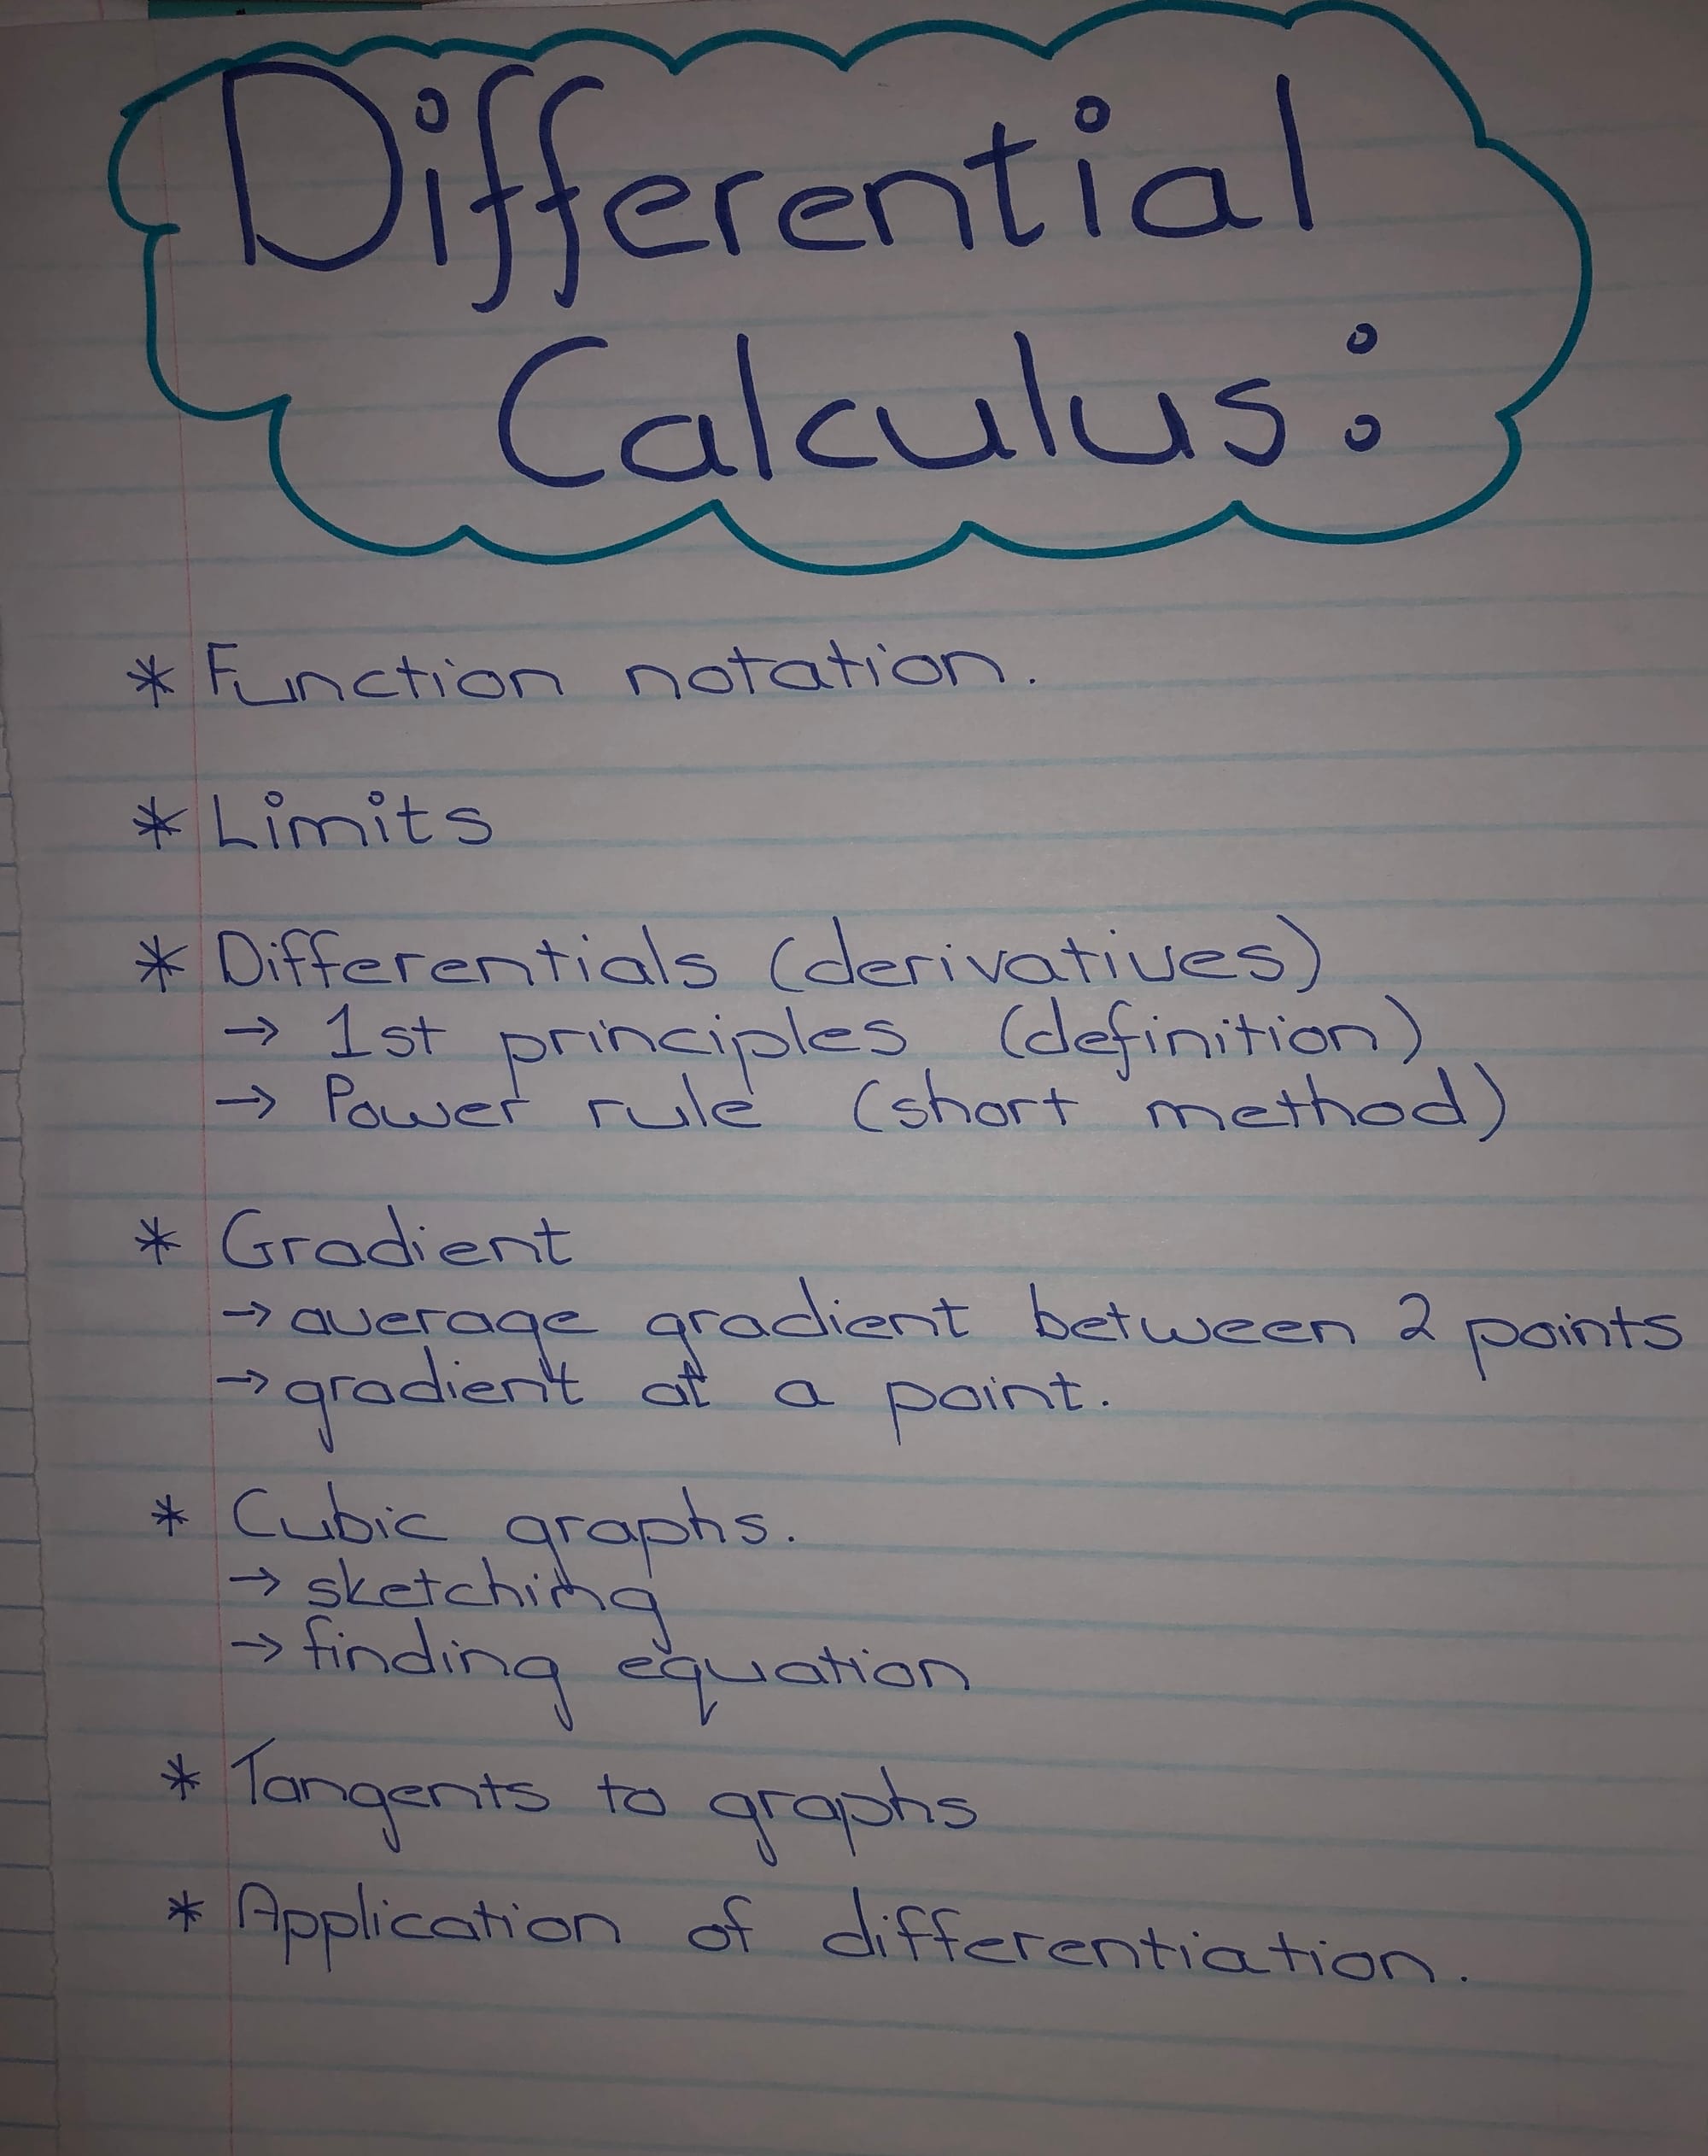 Differential
Calculus:
* Function notation.
* Limits
* Differentials (derivatives)
→ 1st principles (definition)
→ Power rule (short method)
* Gradient
→ average gradient between 2 points
→ gradient at a point.
* Cubic graphs.
→ sketching
→ finding equation
* Tangents to graphs
* Application of differentiation.